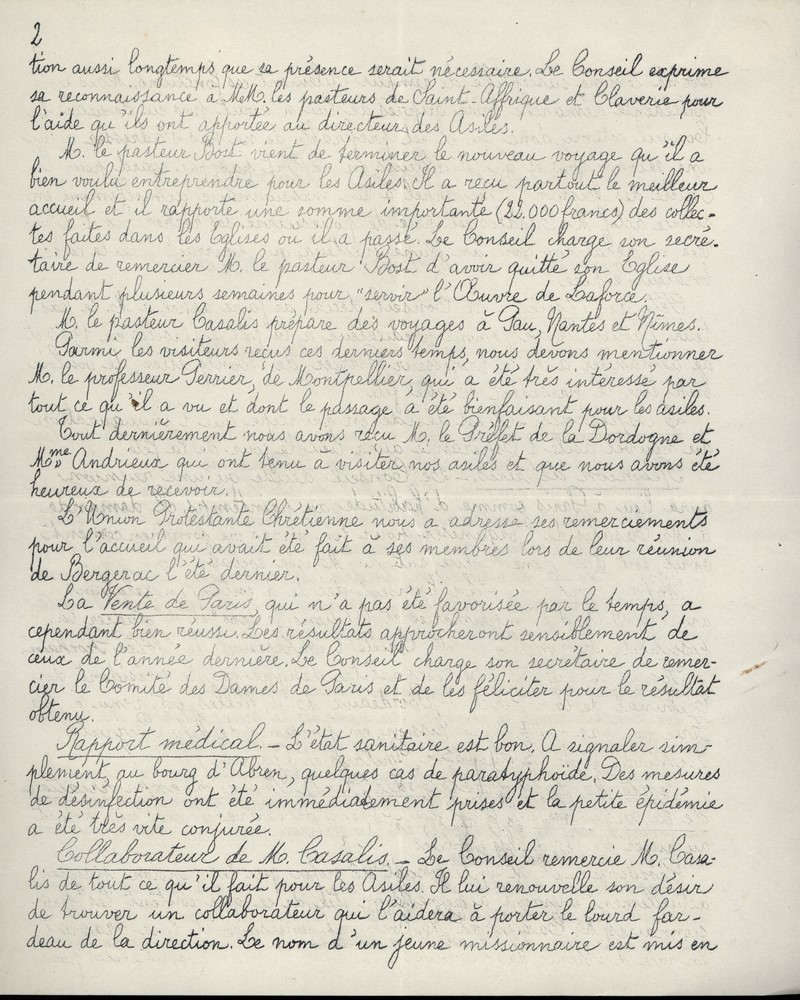 2
tion aussi longtemps que sa présence serait nécessaire. Le Conseil exprime
sa reconnaissance à MM. les pasteurs de Saint-Affrique et Claverie pour
l'aide qu'ils ont apportée au directeur des Asiles.
M. le pasteur Bost vient de terminer le nouveau voyage qu'il a
bien voulu entreprendre pour les Asiles. Il a reçu partout le meilleur
accueil et il rapporte une somme importante (22.000 francs) des collec-
tes faites dans les Eglises où il a passé. Le Conseil charge son secré-
taire de remercier M. le pasteur Bost d'avoir quitté son Eglise
pendant plusieurs semaines pour "servir" l'Œuvre de Laforce.
M. le pasteur Casalis prépare des voyages à Pau, Nantes et Nîmes.
Parmi les visiteurs reçus ces derniers temps, nous devons mentionner
M. le professeur Perrier, de Montpellier, qui a été très intéressé par
tout ce qu'il a vu et dont le passage a été bienfaisant pour les asiles.
Tout dernièrement nous avons reçu M. le Préfet de la Dordogne et
Mme Andrieux qui ont tenu à visiter nos asiles et que nous avons été
heureux de recevoir.
L'Union Protestante Chrétienne nous a adressé ses remerciements
pour l'accueil qui avait été fait à ses membres lors de leur réunion
de Bergerac l'été dernier.
La Vente de Paris, qui n'a pas été favorisée par le temps, a
cependant bien réussi. Les résultats approcheront sensiblement de
ceux de l'année dernière. Le Conseil charge son secrétaire de remer-
cier le Comité des Dames de Paris et de les féliciter pour le résultat
obtenu.
Rapport médical. - L'état sanitaire est bon. A signaler sim-
plement, au bourg d'Abren, quelques cas de paratyphoïde. Des mesures
de désinfection ont été immédiatement prises et la petite épidémie
a été très vite conjurée.
Collaborateur de M. Casalis. - Le Conseil remercie M. Casa-
lis de tout ce qu'il fait pour les Asiles. Il lui renouvelle son désir
de trouver un collaborateur qui l'aidera à porter le lourd far-
deau de la direction. Le nom d'un jeune missionnaire est mis en